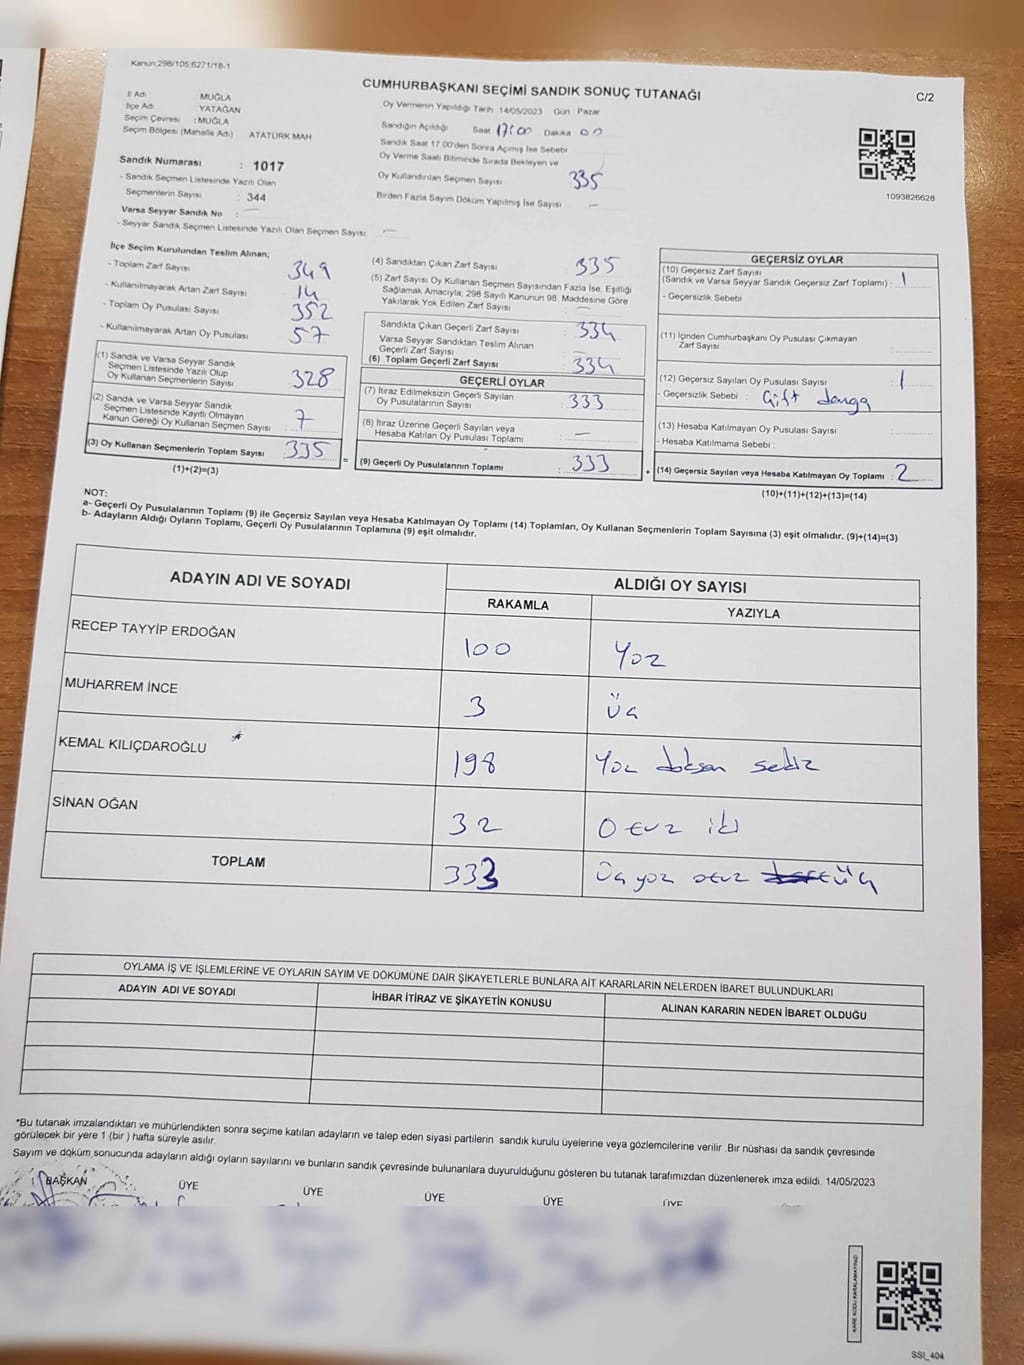 Kanun:298/105,6271/18-1
CUMHURBAŞKANI SEÇİMİ SANDIK SONUÇ TUTANAĞI
C/2
İl Adı MUĞLA
İlçe Adı YATAĞAN
Seçim Çevresi : MUĞLA
Seçim Bölgesi (Mahalle Adı) ATATÜRK MAH
Oy Vermenin Yapıldığı Tarih 14/05/2023 Gün : Pazar
Sandığın Açıldığı Saat 17:00 Dakika 00
Sandık Saat 17.00'den Sonra Açımış İse Sebebi
Oy Verme Saati Bitiminde Sırada Bekleyen ve
Oy Kullandırılan Seçmen Sayısı 335
Birden Fazla Sayım Döküm Yapılmış İse Sayısı : —
1093826628
Sandık Numarası : 1017
- Sandık Seçmen Listesinde Yazılı Olan
Seçmenlerin Sayısı : 344
Varsa Seyyar Sandık No : —
- Seyyar Sandık Seçmen Listesinde Yazılı Olan Seçmen Sayısı —
İlçe Seçim Kurulundan Teslim Alınan;
- Toplam Zarf Sayısı 349
- Kullanılmayarak Artan Zarf Sayısı 14
- Toplam Oy Pusulası Sayısı 352
- Kullanılmayarak Artan Oy Pusulası : 57
(1) Sandık ve Varsa Seyyar Sandık
Seçmen Listesinde Yazılı Olup
Oy Kullanan Seçmenlerin Sayısı 328
(2) Sandık ve Varsa Seyyar Sandık
Seçmen Listesinde Kayıtlı Olmayan
Kanun Gereği Oy Kullanan Seçmen Sayısı : 7
(3) Oy Kullanan Seçmenlerin Toplam Sayısı 335
(1)+(2)=(3)
(4) Sandıktan Çıkan Zarf Sayısı 335
(5) Zarf Sayısı Oy Kullanan Seçmen Sayısından Fazla İse, Eşitliği
Sağlamak Amacıyla, 298 Sayılı Kanunun 98. Maddesine Göre
Yakılarak Yok Edilen Zarf Sayısı : —
Sandıkta Çıkan Geçerli Zarf Sayısı : 334
Varsa Seyyar Sandıktan Teslim Alınan
Geçerli Zarf Sayısı : —
(6) Toplam Geçerli Zarf Sayısı 334
GEÇERLİ OYLAR
(7) İtiraz Edilmeksizin Geçerli Sayılan
Oy Pusulalarının Sayısı : 333
(8) İtiraz Üzerine Geçerli Sayılan veya
Hesaba Katılan Oy Pusulası Toplamı : —
= (9) Geçerli Oy Pusulalarının Toplamı : 333
GEÇERSİZ OYLAR
(10) Geçersiz Zarf Sayısı
(Sandık ve Varsa Seyyar Sandık Geçersiz Zarf Toplamı) : 1
- Geçersizlik Sebebi :
(11) İçinden Cumhurbaşkanı Oy Pusulası Çıkmayan
Zarf Sayısı :
(12) Geçersiz Sayılan Oy Pusulası Sayısı : 1
- Geçersizlik Sebebi : Çift damga
(13) Hesaba Katılmayan Oy Pusulası Sayısı :
- Hesaba Katılmama Sebebi :
+ (14) Geçersiz Sayılan veya Hesaba Katılmayan Oy Toplamı : 2
(10)+(11)+(12)+(13)=(14)
NOT:
a- Geçerli Oy Pusulalarının Toplamı (9) ile Geçersiz Sayılan veya Hesaba Katılmayan Oy Toplamı (14) Toplamları, Oy Kullanan Seçmenlerin Toplam Sayısına (3) eşit olmalıdır. (9)+(14)=(3)
b- Adayların Aldığı Oyların Toplamı, Geçerli Oy Pusulalarının Toplamına (9) eşit olmalıdır.
ADAYIN ADI VE SOYADI ALDIĞI OY SAYISI
RAKAMLA YAZIYLA
RECEP TAYYİP ERDOĞAN 100 Yüz
MUHARREM İNCE 3 üç
KEMAL KILIÇDAROĞLU 198 Yüz doksan sekiz
SİNAN OĞAN 32 Otuz iki
TOPLAM 333 üç yüz otuz üç
OYLAMA İŞ VE İŞLEMLERİNE VE OYLARIN SAYIM VE DÖKÜMÜNE DAİR ŞİKAYETLERLE BUNLARA AİT KARARLARIN NELERDEN İBARET BULUNDUKLARI
ADAYIN ADI VE SOYADI İHBAR İTİRAZ VE ŞİKAYETİN KONUSU ALINAN KARARIN NEDEN İBARET OLDUĞU
*Bu tutanak imzalandıktan ve mühürlendikten sonra seçime katılan adayların ve talep eden siyasi partilerin sandık kurulu üyelerine veya gözlemcilerine verilir .Bir nüshası da sandık çevresinde
görülecek bir yere 1 (bir ) hafta süreyle asılır.
Sayım ve döküm sonucunda adayların aldığı oyların sayılarını ve bunların sandık çevresinde bulunanlara duyurulduğunu gösteren bu tutanak tarafımızdan düzenlenerek imza edildi. 14/05/2023
BAŞKAN ÜYE ÜYE ÜYE ÜYE ÜYE
KARE KODU KARALAMAYINIZ!
SSI_404